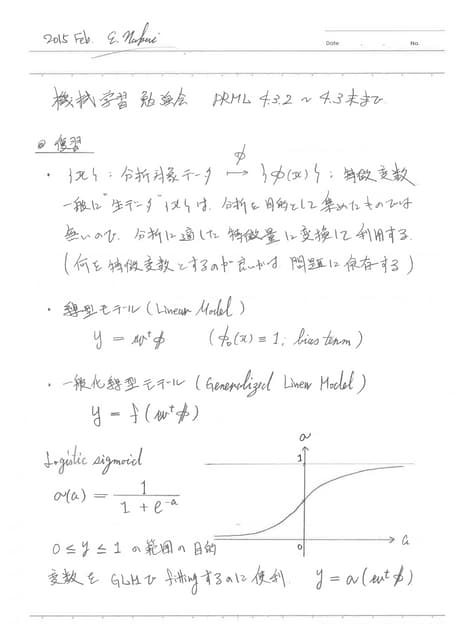 2015 Feb. E. Nakai
Date . . No.
機械学習 勉強会 PRML 4.3.2 ~ 4.3末まで
◎ 復習
・ {x} : 分析対象データ ↦ {φ(x)} : 特徴変数
φ
一般に "生データ" {x} は、分析を目的として集めたものでは
無いので、分析に適した特徴量に変換して利用する.
(何を特徴変数とするのが良いかは 問題に依存する)
・ 線型モデル (Linear Model)
y = wᵗφ (φ₀(x) ≡ 1 ; bias term)
・ 一般化線型モデル (Generalized Linear Model)
y = f(wᵗφ)
Logistic sigmoid
σ(a) = 1 / (1 + e^-a)
σ
1
0
a
0 ≤ y ≤ 1 の範囲の目的
変数を GLMで fittingするのに便利. y = σ(wᵗφ)